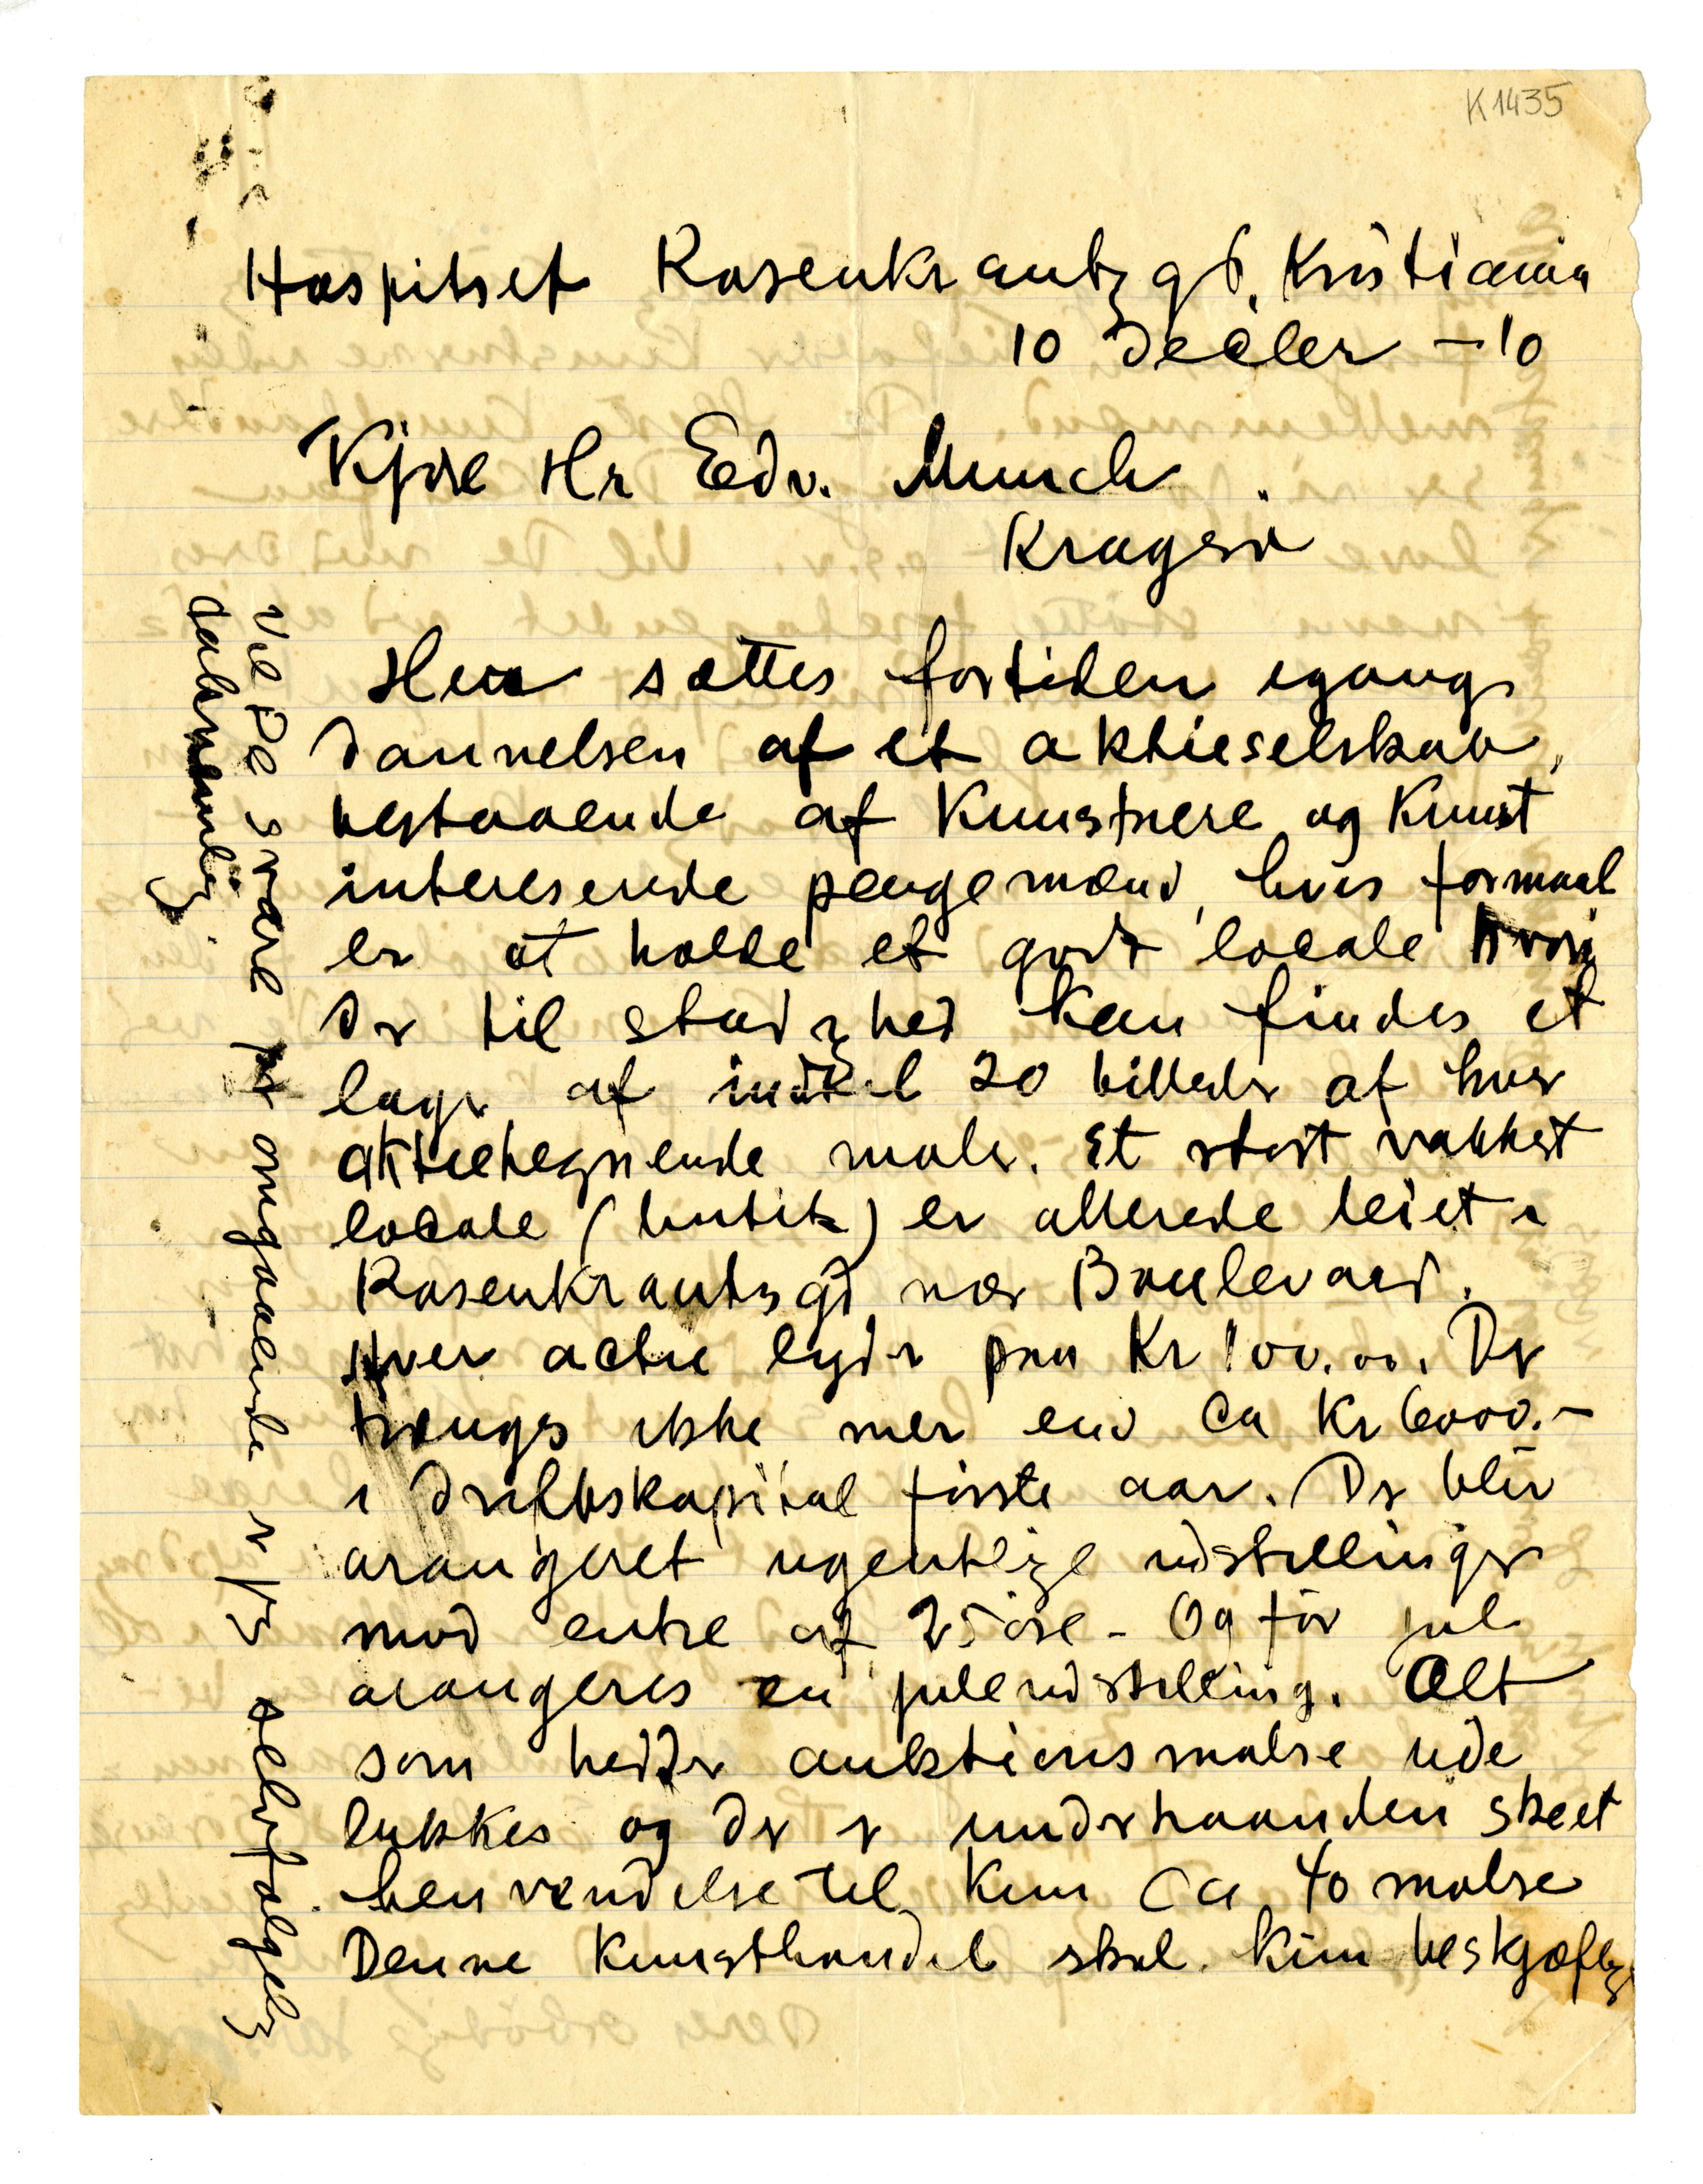 K1435
Hospitset Rosenkrantzgd. Kristiania
10 Decbler – 10
Kjære Hr Edv. Munch
Kragerø
Her sættes fortiden igang
dannelsen af et aktieselskab,
bestaaende af Kunstnere og Kunst
interesserede pengemænd, hvis formaal
er at holde et godt locale hvori
der til stadighed kan findes et
lager af indtil 20 billeder af hver
aktietegnende maler. Et stort vakkert
locale (butik) er allerede leiet i
Rosenkrantzgd nær Boulevard.
Hver actie lyder paa Kr 100.00. Der
trænges ikke mer end Ca Kr 6000.–
i driftskapital første aar. Der blir
arangeret ugentlige udstillinger
mod entre af 25 øre – Og før jul
arangeres en juleudstilling. Alt
som hedder auktionsmalere ude
lukkes og der er underhaanden skeet
henvendelse til kun Ca 40 malere
Denne Kunsthandel skal kun beskjæftige
Vil De svare pr omgaaende er jeg selvfølgelig
taknemlig